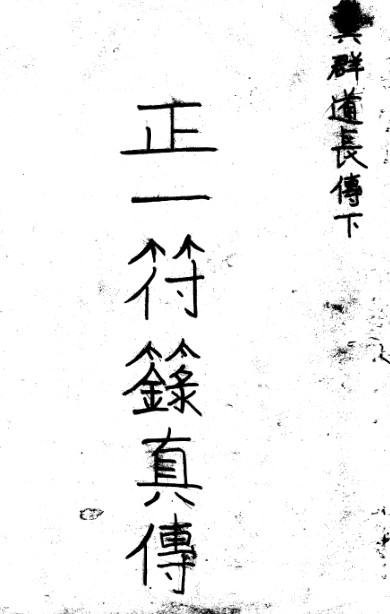 群道長傳下
正一符籙真傳